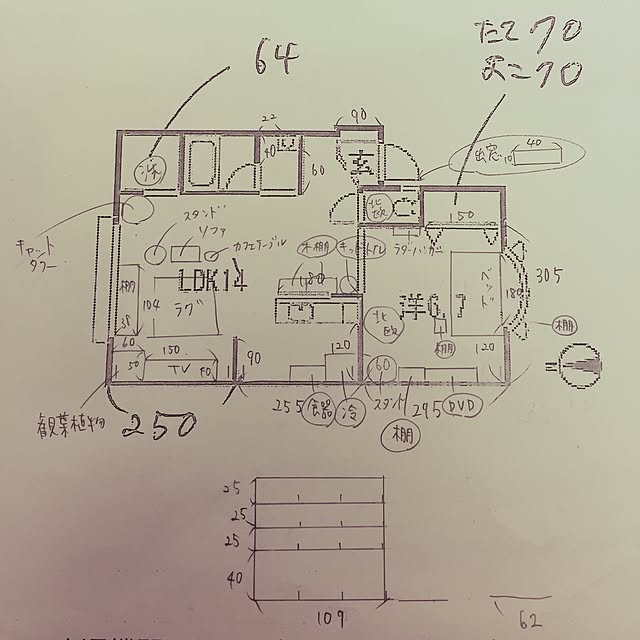 64
たて70
よこ70
22
90
40
60
玄
出窓
10
40
床
北段
150
スタンド
ソファ
カフェテーブル
本棚
ラダーハンガー
キャット
タワー
LDK14
180
洋6.7
ベッド
180
305
棚
38
104
ラグ
北段
棚
棚
60
50
150
TV
90
120
60
120
観葉植物
250
255
食器
冷
スタンド
棚
295
DVD
25
25
25
40
109
62